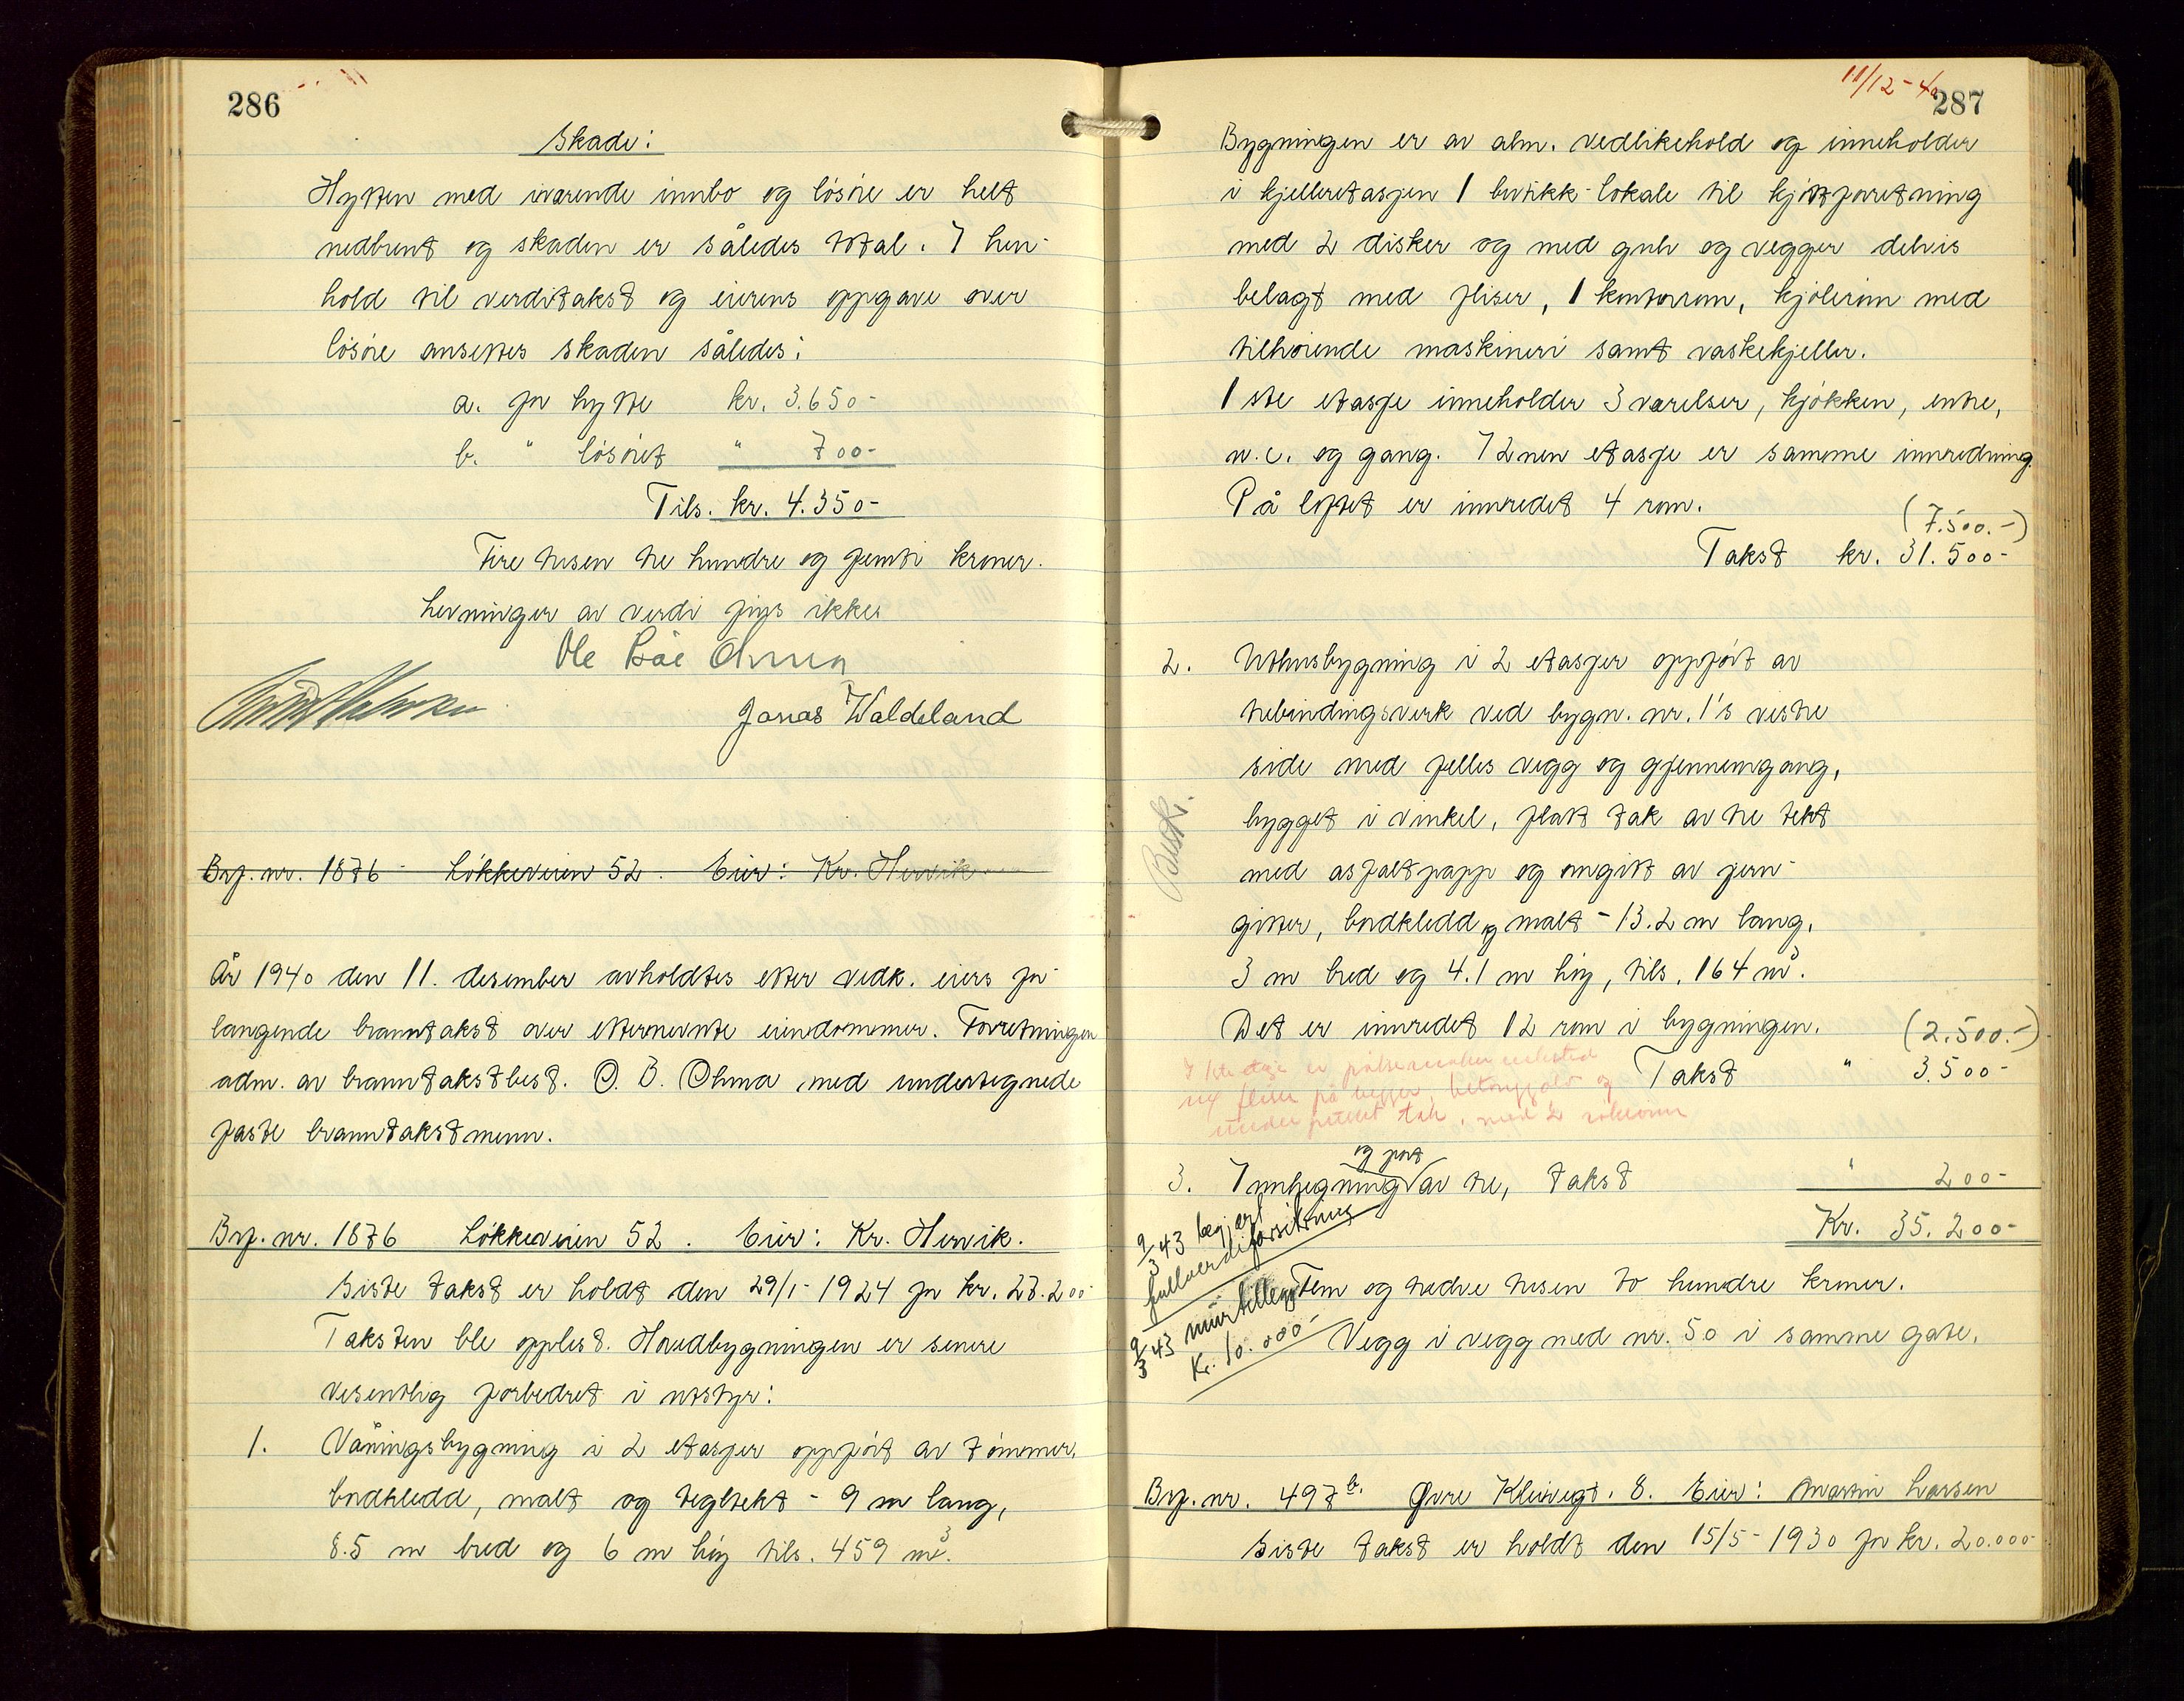 286
Skade:
Hytten med iværende innbo og lösöre er helt
nedbrent og skaden er således total. I hen-
hold til verditakst og eierens oppgave over
lösöre ansettes skaden således:
a. for hytte kr. 3.650-
b. " lösöret " 700-
Tils. kr. 4.350-
Fire tusen tre hundre og femti kroner.
Levninger av verdi fins ikke.
Ole Böe
Jonas Waldeland
Brf. nr. 1876 - Lökkeveien 52. Eier: Kr. Hervik
År 1940 den 11. desember avholdtes etter vedk. eiers for-
langende branntakst over etternevnte eiendommer. Forretningen
adm. av branntakstbest. O. B. Ohma med undertegnede
faste branntakstmenn.
Brf. nr. 1876 Lökkeveien 52. Eier: Kr. Hervik.
Siste takst er holdt den 29/1-1924 for kr. 28.200-
Taksten ble opplest. Hovedbygningen er senere
vesentlig forbedret i utstyr:
1. Våningsbygning i 2 etasjer oppfört av tömmer,
bordkledd, malt og tegltekt - 9 m lang,
8.5 m bred og 6 m höy tils. 459 m³.
11/12-40
287
Bygningen er av alm. vedlikehold og inneholder
i kjelleretasjen 1 butikk-lokale til kjöttforretning
med 2 disker og med gulv og vegger delvis
belagt med fliser, 1 kontorrom, kjölerom med
tilhörende maskineri samt vaskekjeller.
1ste etasje inneholder 3 værelser, kjökken, entre,
w.c. og gang. I 2nen etasje er samme innredning.
På loftet er innredet 4 rom.
(7.500.-)
Takst kr. 31.500-
2. Uthusbygning i 2 etasjer oppfört av
trebindingsverk ved bygn. nr. 1's vestre
side med felles vegg og gjennemgang,
bygget i vinkel, flatt tak av tre tekt
med asfaltpapp og omgitt av jern-
gitter, bordkledd og malt - 13.2 m lang,
3 m bred og 4.1 m höy, tils. 164 m³.
Det er innredet 12 rom i bygningen.
(2.500.-)
Takst " 3.500-
I 1ste etasje er pölsemaker
fliser på vegger, betonggolv og
tak, med 2
og port
3. Innhegning av tre, takst " 200-
Kr. 35.200-
9/3 43 begjært
fullverdiforsikring
9/3 43 murtillegg
Kr. 10.000-
Fem og tredve tusen to hundre kroner.
Vegg i vegg med nr. 50 i samme gate.
Brf. nr. 497 b. Övre Klevegt. 8. Eier: Martin Larsen
Siste takst er holdt den 15/5-1930 for kr. 20.000-